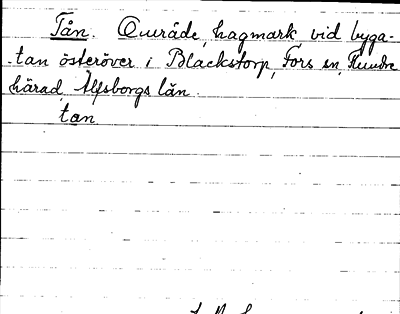 Tån. Område, hagmark vid byga-
-tan österöver i Blackstorp, Fors sn, Flundre
härad, Älfsborgs län.
tan